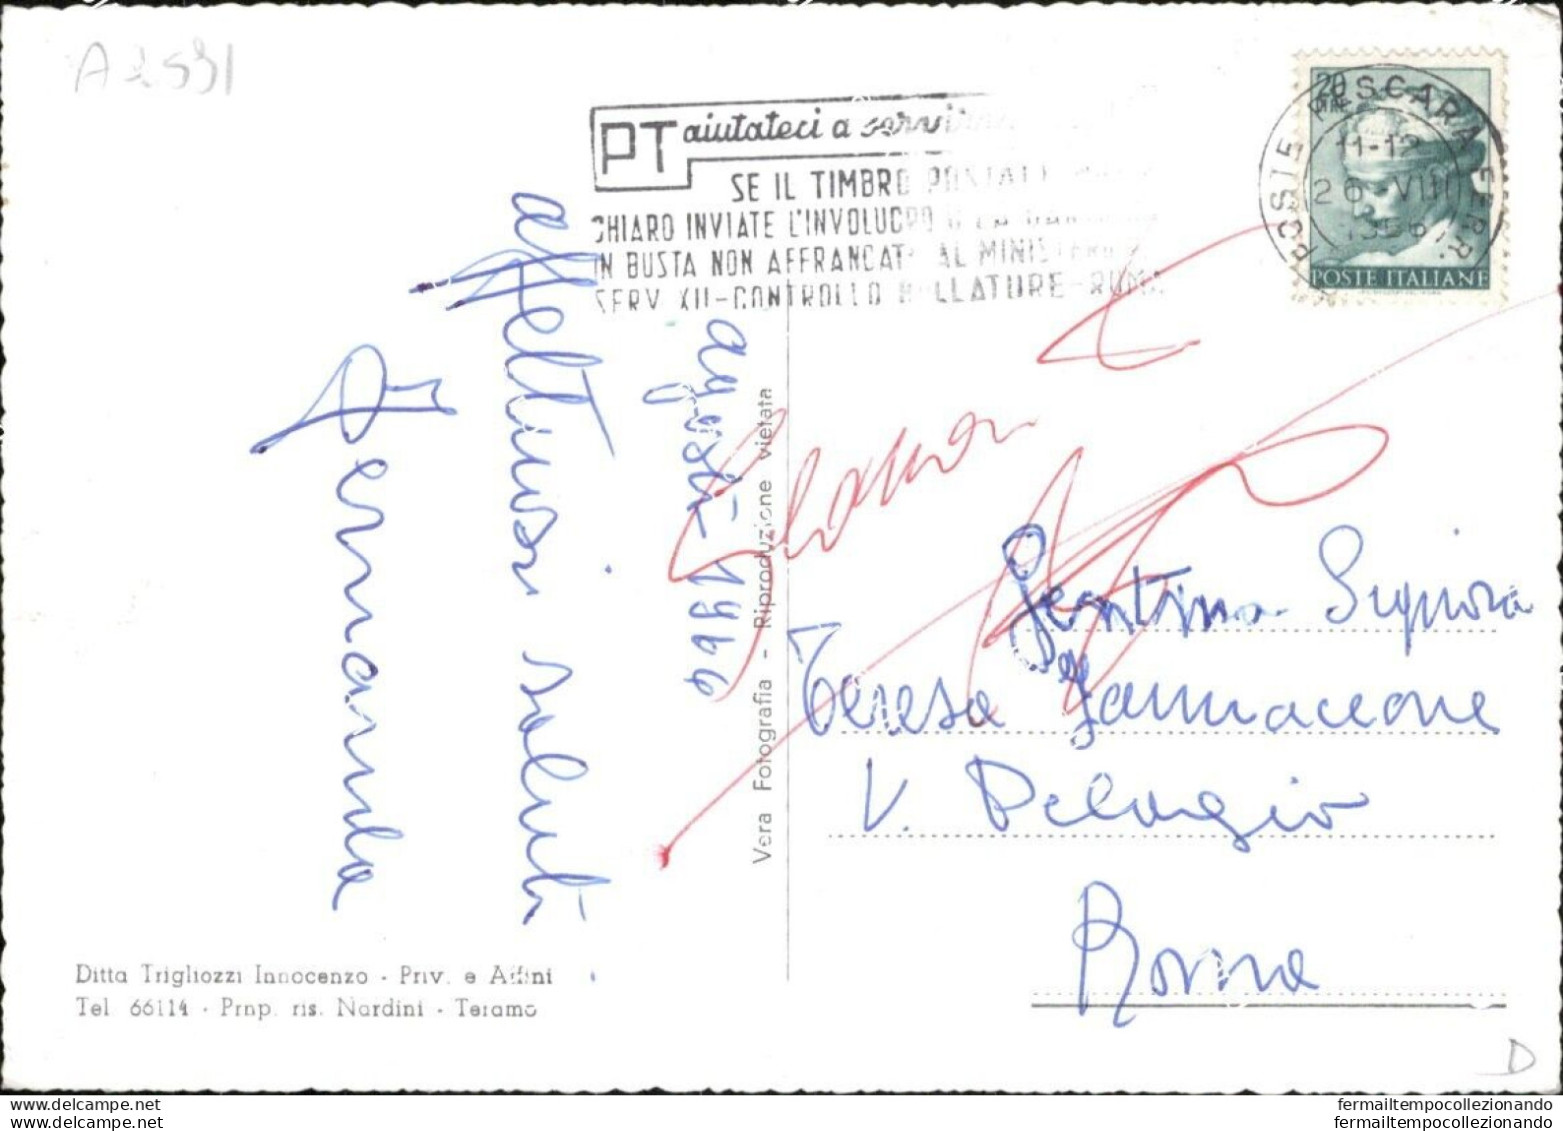 A2531
PT aiutateci a servir
SE IL TIMBRO POSTALE
CHIARO INVIATE L'INVOLUCRO O LA
IN BUSTA NON AFFRANCATA AL MINISTERO
SERV. XII-CONTROLLO BOLLATURE-ROMA
20
LIRE
POSTE ITALIANE
POSTE PESCARA FERR.
11-12
26 VIII
196
agosto 1966
affettuosi saluti
Fernanda
Vera Fotografia - Riproduzione vietata
Gentma Signora
Teresa Iannaccone
V. Pelagio
Roma
Ditta Trigliozzi Innocenzo - Priv. e Affini
Tel. 66114 - Prop. ris. Nardini - Teramo
D
fermailtempocollezionando
fermailtempocollezionando
fermailtempocollezionando
fermailtempocollezionando